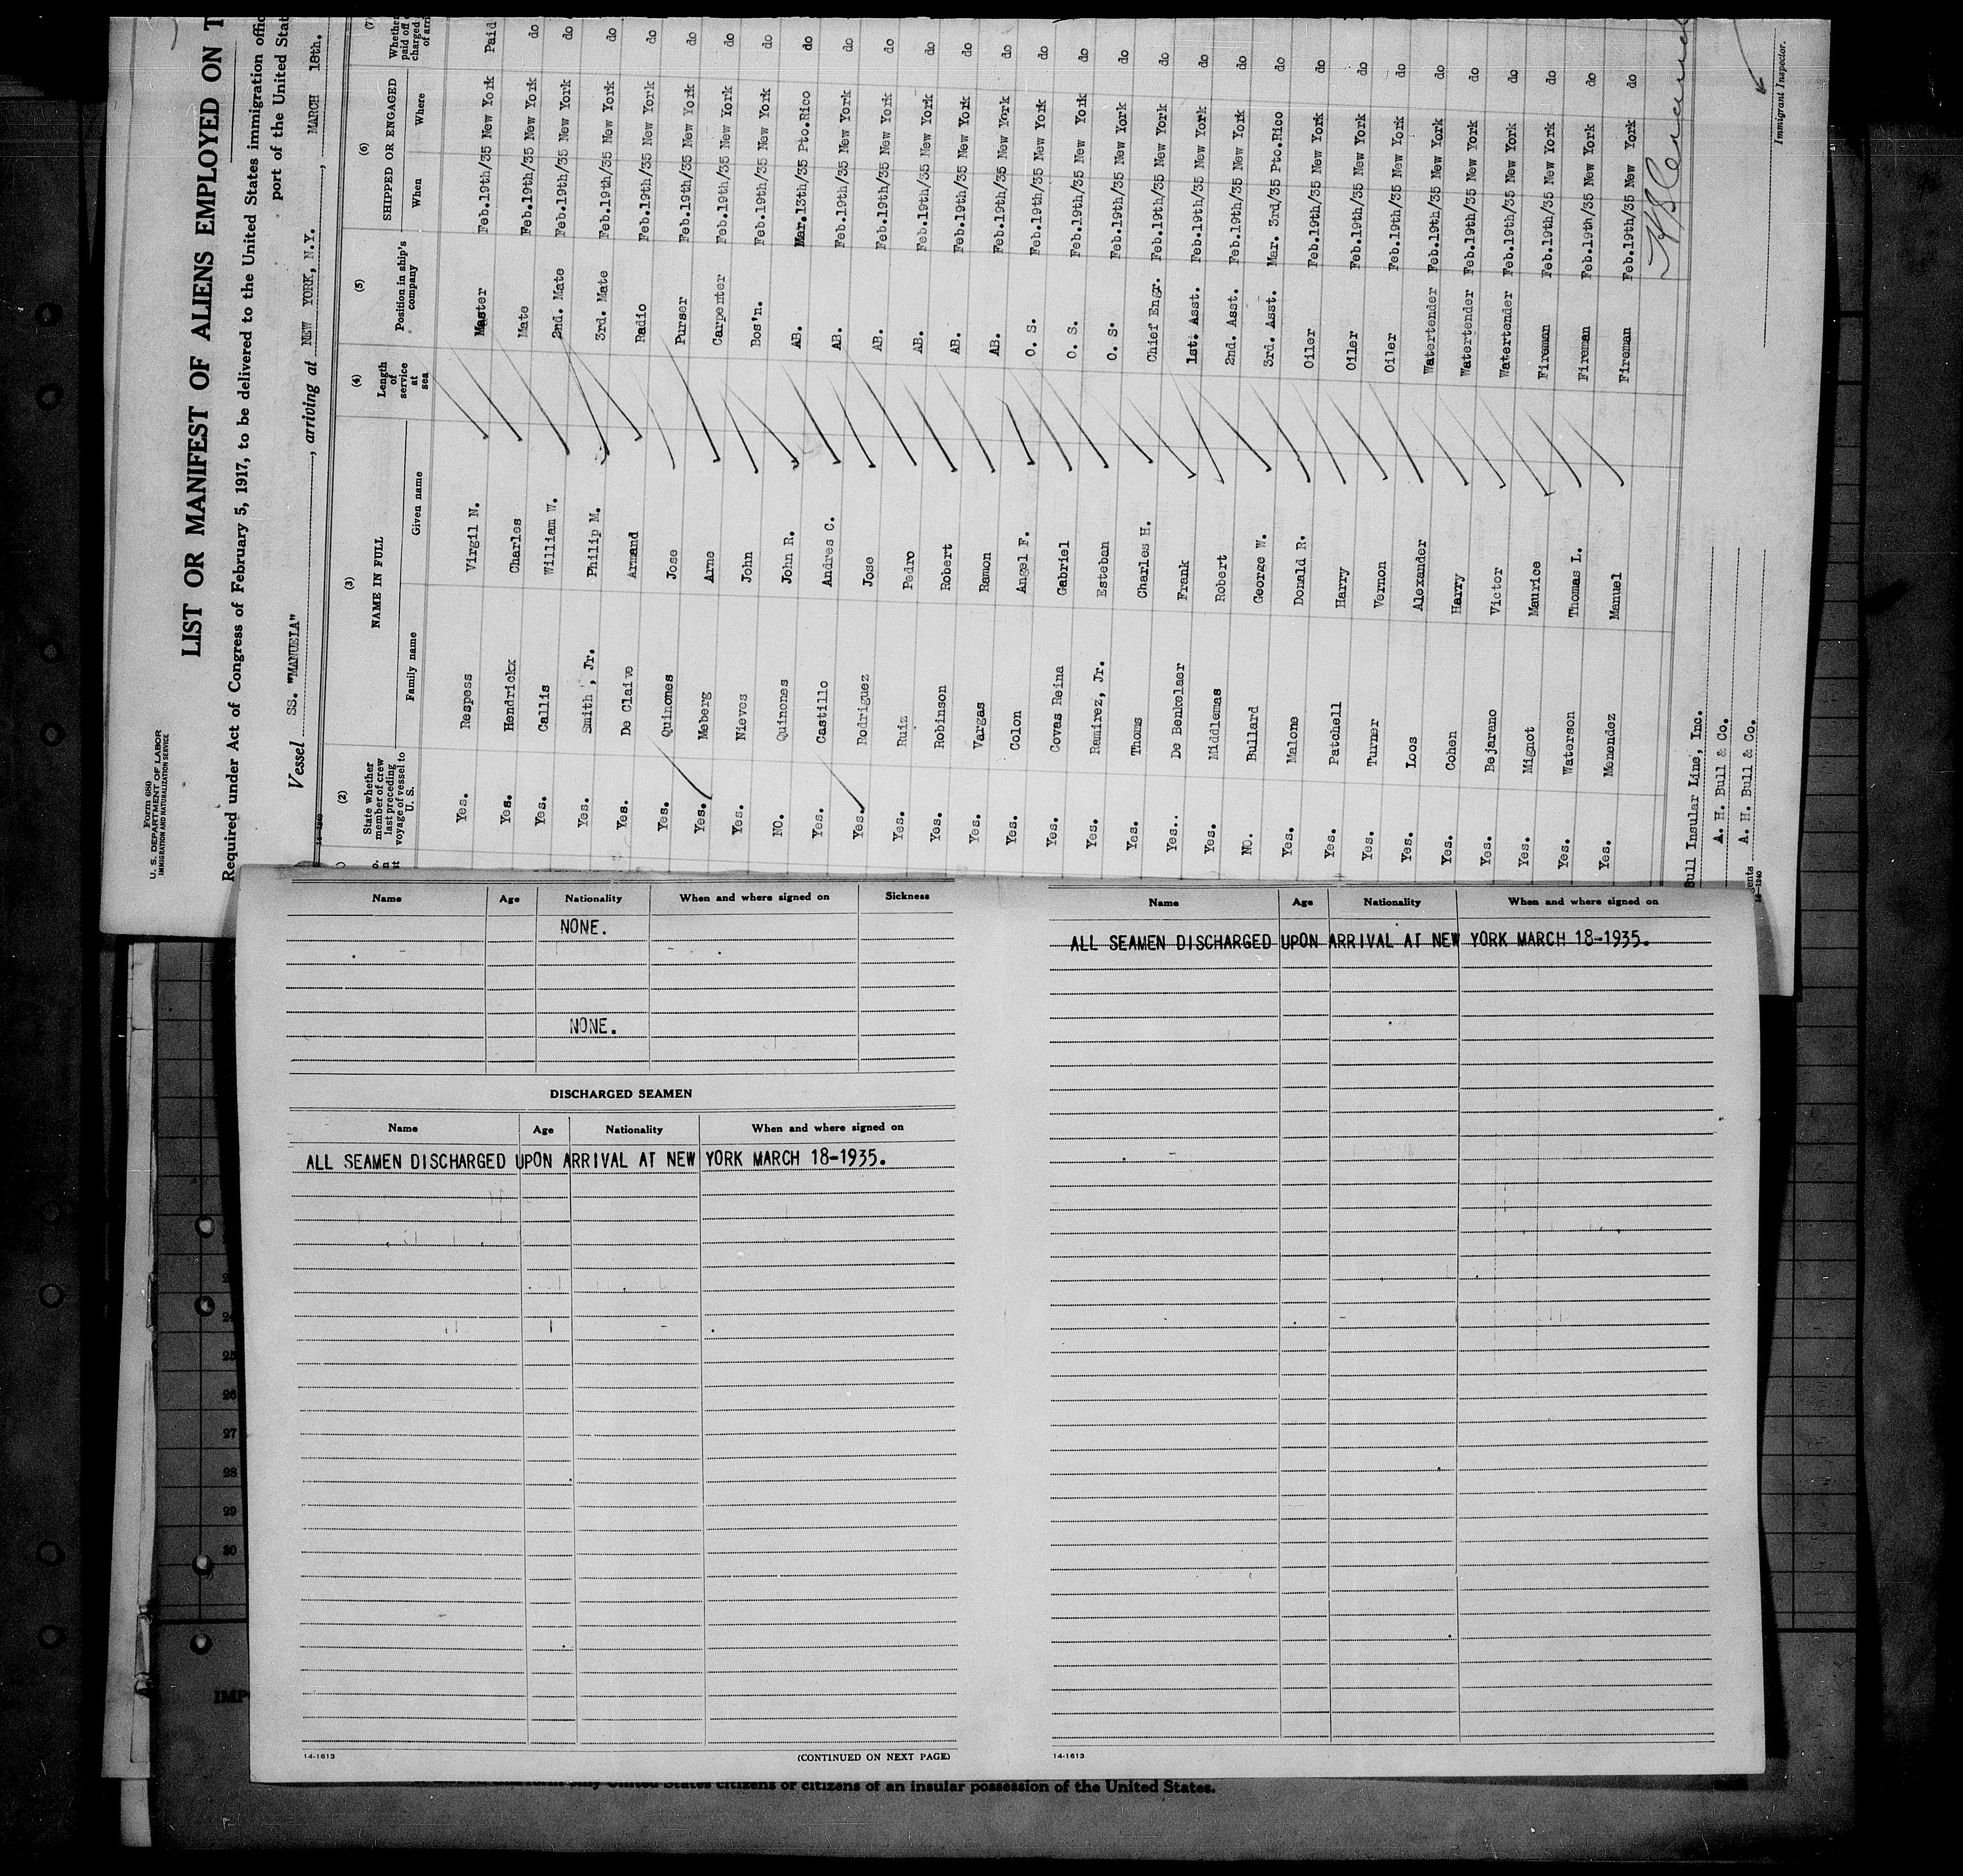 Form 680
U. S. DEPARTMENT OF LABOR
IMMIGRATION AND NATURALIZATION SERVICE
LIST OR MANIFEST OF ALIENS EMPLOYED ON T
Required under Act of Congress of February 5, 1917, to be delivered to the United States immigration offic
port of the United Stat
Vessel SS. "MANUELA", arriving at NEW YORK, N.Y., MARCH 18th.
(2) (3) (4) (5) (6) (7)
State whether member of crew last preceding voyage of vessel to U. S. NAME IN FULL Length of service at sea Position in ship's company SHIPPED OR ENGAGED Whether paid off charged of arri
Family name Given name When Where
Yes. Respess Virgil N. Master Feb.19th/35 New York Paid
Yes. Hendrickx Charles Mate Feb.19th/35 New York do
Yes. Callis William W. 2nd. Mate Feb.19th/35 New York do
Yes. Smith , Jr. Philip M. 3rd. Mate Feb.19th/35 New York do
Yes. De Claive Armand Radio Feb.19th/35 New York do
Yes. Quinones Jose Purser Feb.19th/35 New York do
Yes. Meberg Arne Carpenter Feb.19th/35 New York do
Yes. Nieves John Bos'n. Feb.19th/35 New York do
NO. Quinones John R. AB. Mar.13th/35 Pto.Rico do
Yes. Castillo Andres C. AB. Feb.19th/35 New York do
Yes. Rodriguez Jose AB. Feb.19th/35 New York do
Yes. Ruiz Pedro AB. Feb.19th/35 New York do
Yes. Robinson Robert AB. Feb.19th/35 New York do
Yes. Vargas Ramon AB. Feb.19th/35 New York do
Yes. Colon Angel F. O. S. Feb.19th/35 New York do
Yes. Covas Reina Gabriel O. S. Feb.19th/35 New York do
Yes. Ramirez, Jr. Esteban O. S. Feb.19th/35 New York do
Yes. Thoms Charles H. Chief Engr. Feb.19th/35 New York do
Yes.. De Benkelaer Frank 1st. Asst. Feb.19th/35 New York do
Yes. Middlemas Robert 2nd. Asst. Feb.19th/35 New York do
NO. Bullard George W. 3rd. Asst. Mar. 3rd/35 Pto.Rico do
Yes. Malone Donald R. Oiler Feb.19th/35 New York do
Yes. Patchell Harry Oiler Feb.19th/35 New York do
Yes. Turner Vernon Oiler Feb.19th/35 New York do
Yes. Loos Alexander Watertender Feb.19th/35 New York do
Yes. Cohen Harry Watertender Feb.19th/35 New York do
Yes. Bejarano Victor Watertender Feb.19th/35 New York do
Yes. Mignot Maurice Fireman Feb.19th/35 New York do
Yes. Waterson Thomas L. Fireman Feb.19th/35 New York do
Yes. Menendez Manuel Fireman Feb.19th/35 New York do
Bull Insular Line, Inc.
A. H. Bull & Co.
A. H. Bull & Co.
14-1240
Immigrant Inspector.
Name Age Nationality When and where signed on Sickness
NONE.
NONE.
DISCHARGED SEAMEN
Name Age Nationality When and where signed on
ALL SEAMEN DISCHARGED UPON ARRIVAL AT NEW YORK MARCH 18-1935.
14-1613 (CONTINUED ON NEXT PAGE)
Name Age Nationality When and where signed on
ALL SEAMEN DISCHARGED UPON ARRIVAL AT NEW YORK MARCH 18-1935.
14-1613
25
26
27
28
29
30
IMP
United States citizens or citizens of an insular possession of the United States.